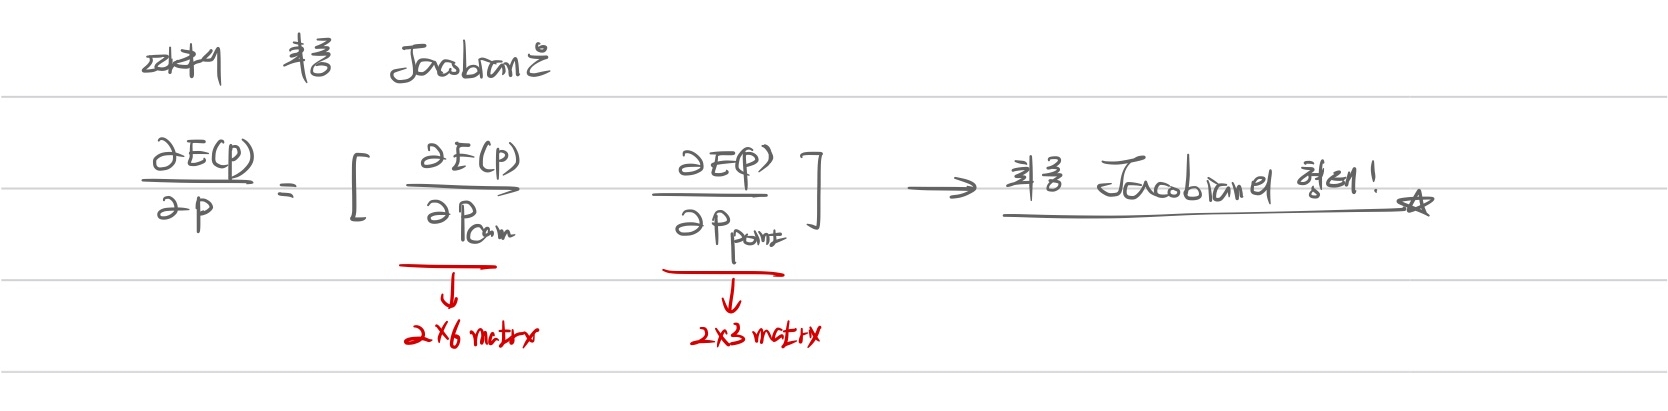 따라서 최종 Jacobian은
∂E(p)/∂p = [ ∂E(p)/∂P_cam ∂E(p)/∂P_point ] → 최종 Jacobian의 형태! ☆
2×6 matrx 2×3 matrx